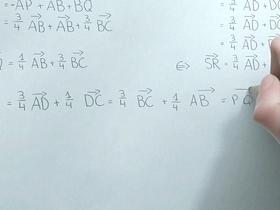 = -AP + AB + BQ
= 3/4 AB + AB + 3/4 BC
= 1/4 AB + 3/4 BC
= 3/4 AD
= 3/4 AD + D
= 3/4 AD +
⇔ SR = 3/4 AD +
= 3/4 AD + 1/4 DC = 3/4 BC + 1/4 AB = PQ